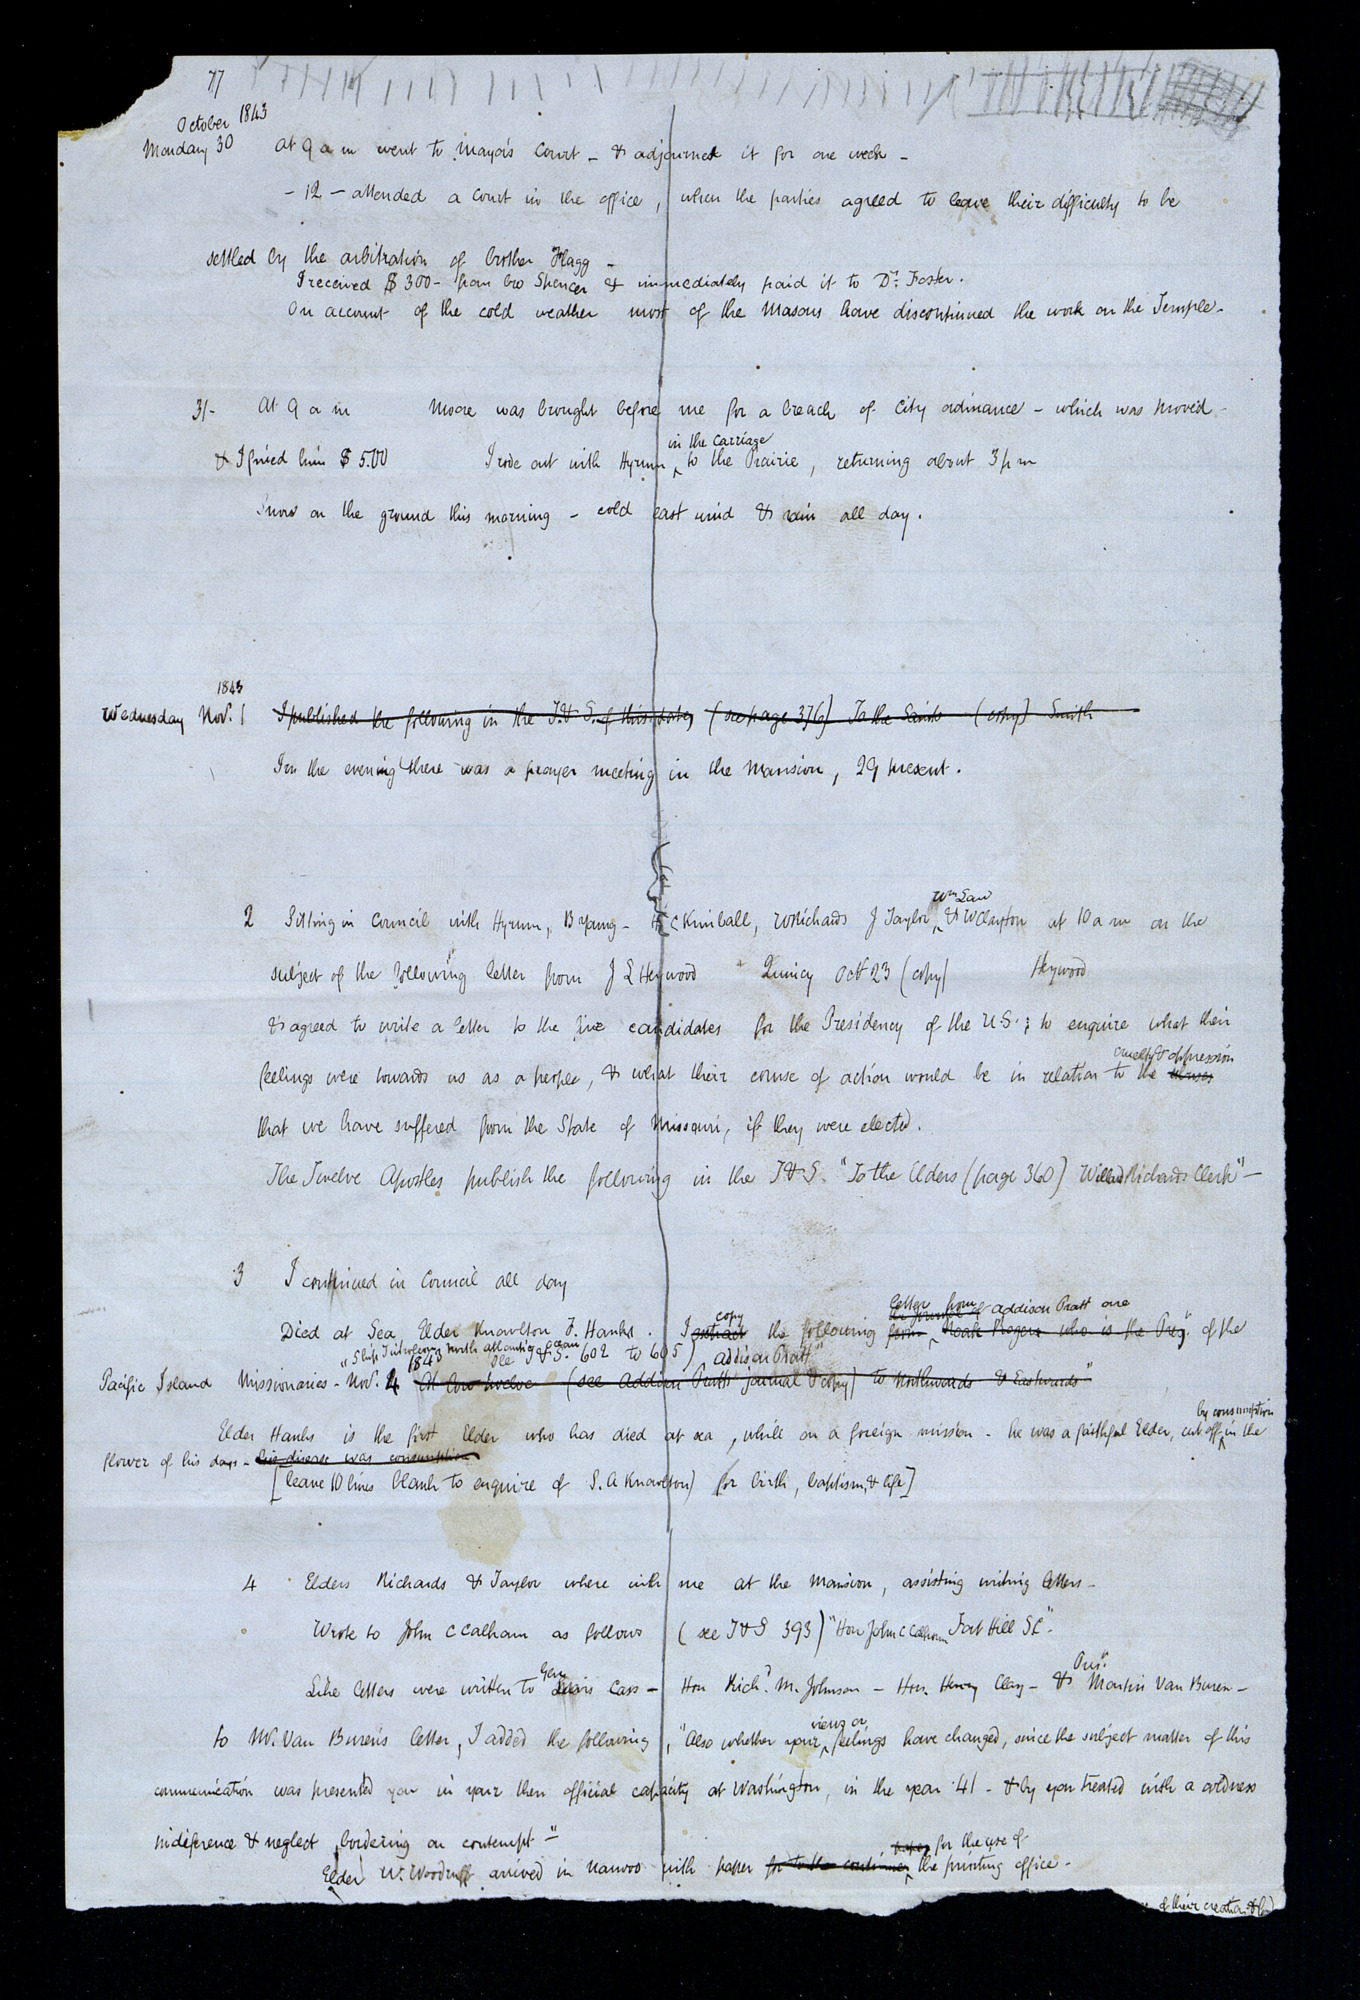 77
October 1843
Monday 30 At 9 a m went to Mayor's Court - & adjourned it for one week -
- 12 - attended a court in the office, when the parties agreed to leave their difficulty to be
settled by the arbitration of brother Flagg -
I received $300- from bro Spencer & immediately paid it to Dr. Foster.
On account of the cold weather most of the Masons have discontinued the work on the Temple.
31- At 9 a m Moore was brought before me for a breach of City ordinance - which was proved -
& I fined him $5.00 I rode out with Hyrum in the carriage to the Prairie, returning about 3 p m
Snow on the ground this morning - cold east wind & rain all day.
1843
Wednesday Nov. 1 I published the following in the T. & S. of this date, (see page 376) To the Saints (copy) Smith
In the evening there was a prayer meeting in the Mansion, 29 present.
Wm Law
2 Sitting in Council with Hyrum, B Young - H C Kimball, W Richards J Taylor, & W Clayton at 10 a m on the
subject of the following letter from J L Heywood Quincy Oct 23 (copy) Heywood
& agreed to write a letter to the five candidates for the Presidency of the U.S.; to enquire what their
cruelty & oppression
feelings were towards us as a people, & what their course of action would be in relation to the
that we have suffered from the State of Missouri, if they were elected.
The Twelve Apostles publish the following in the T & S. "To the Elders (page 360) Willard Richards Clerk" -
3 I continued in Council all day
copy letter from
Died at Sea, Elder Knowlton F. Hanks. I extract the following from the journal of Addison Pratt one Noah Rogers who is the Prest of the
"Ship Timoleon north atlantic ocean see T & S. 602 to 605) Addison Pratt"
Pacific Island Missionaries - Nov. 4 1843 (see Addison Pratt's journal & copy) to Northwards & Eastwards"
by consumption
Elder Hanks is the first Elder who has died at sea, while on a foreign mission - he was a faithful Elder, cut off in the
flower of his days - his disease was consumption
[leave 10 lines blank to enquire of S. A Knowlton) for birth, baptism, & life]
4 Elders Richards & Taylor where with me at the Mansion, assisting writing letters -
Wrote to John C Calhoun as follows (see T & S 393) "Hon John C Calhoun Fort Hill S C".
Like letters were written to Gen Lewis Cass - Hon Richd. M. Johnson - Hon. Henry Clay - & Prest. Martin Van Buren -
views or
to Mr. Van Buren's letter, I added the following, "Also whether your feelings have changed, since the subject matter of this
communication was presented you in your then official capacity at Washington, in the year '41 - & by you treated with a coldness
indifference & neglect, bordering on contempt"
for the use of
Elder W. Woodruff arrived in Nauvoo with paper the printing office -
of their creation &c)